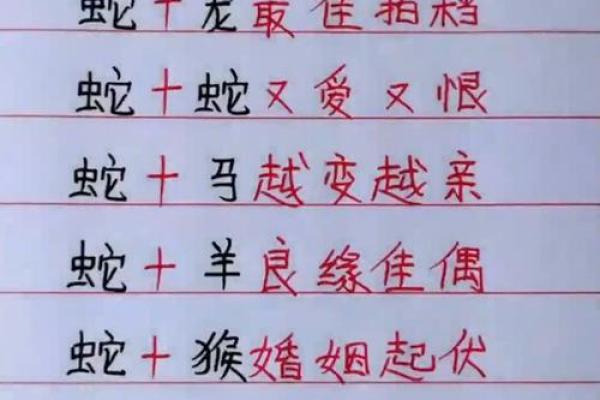 蛇+龙最佳拍档
蛇+蛇又爱又恨
蛇+马越变越亲
蛇+羊良缘佳偶
蛇+猴婚姻起伏